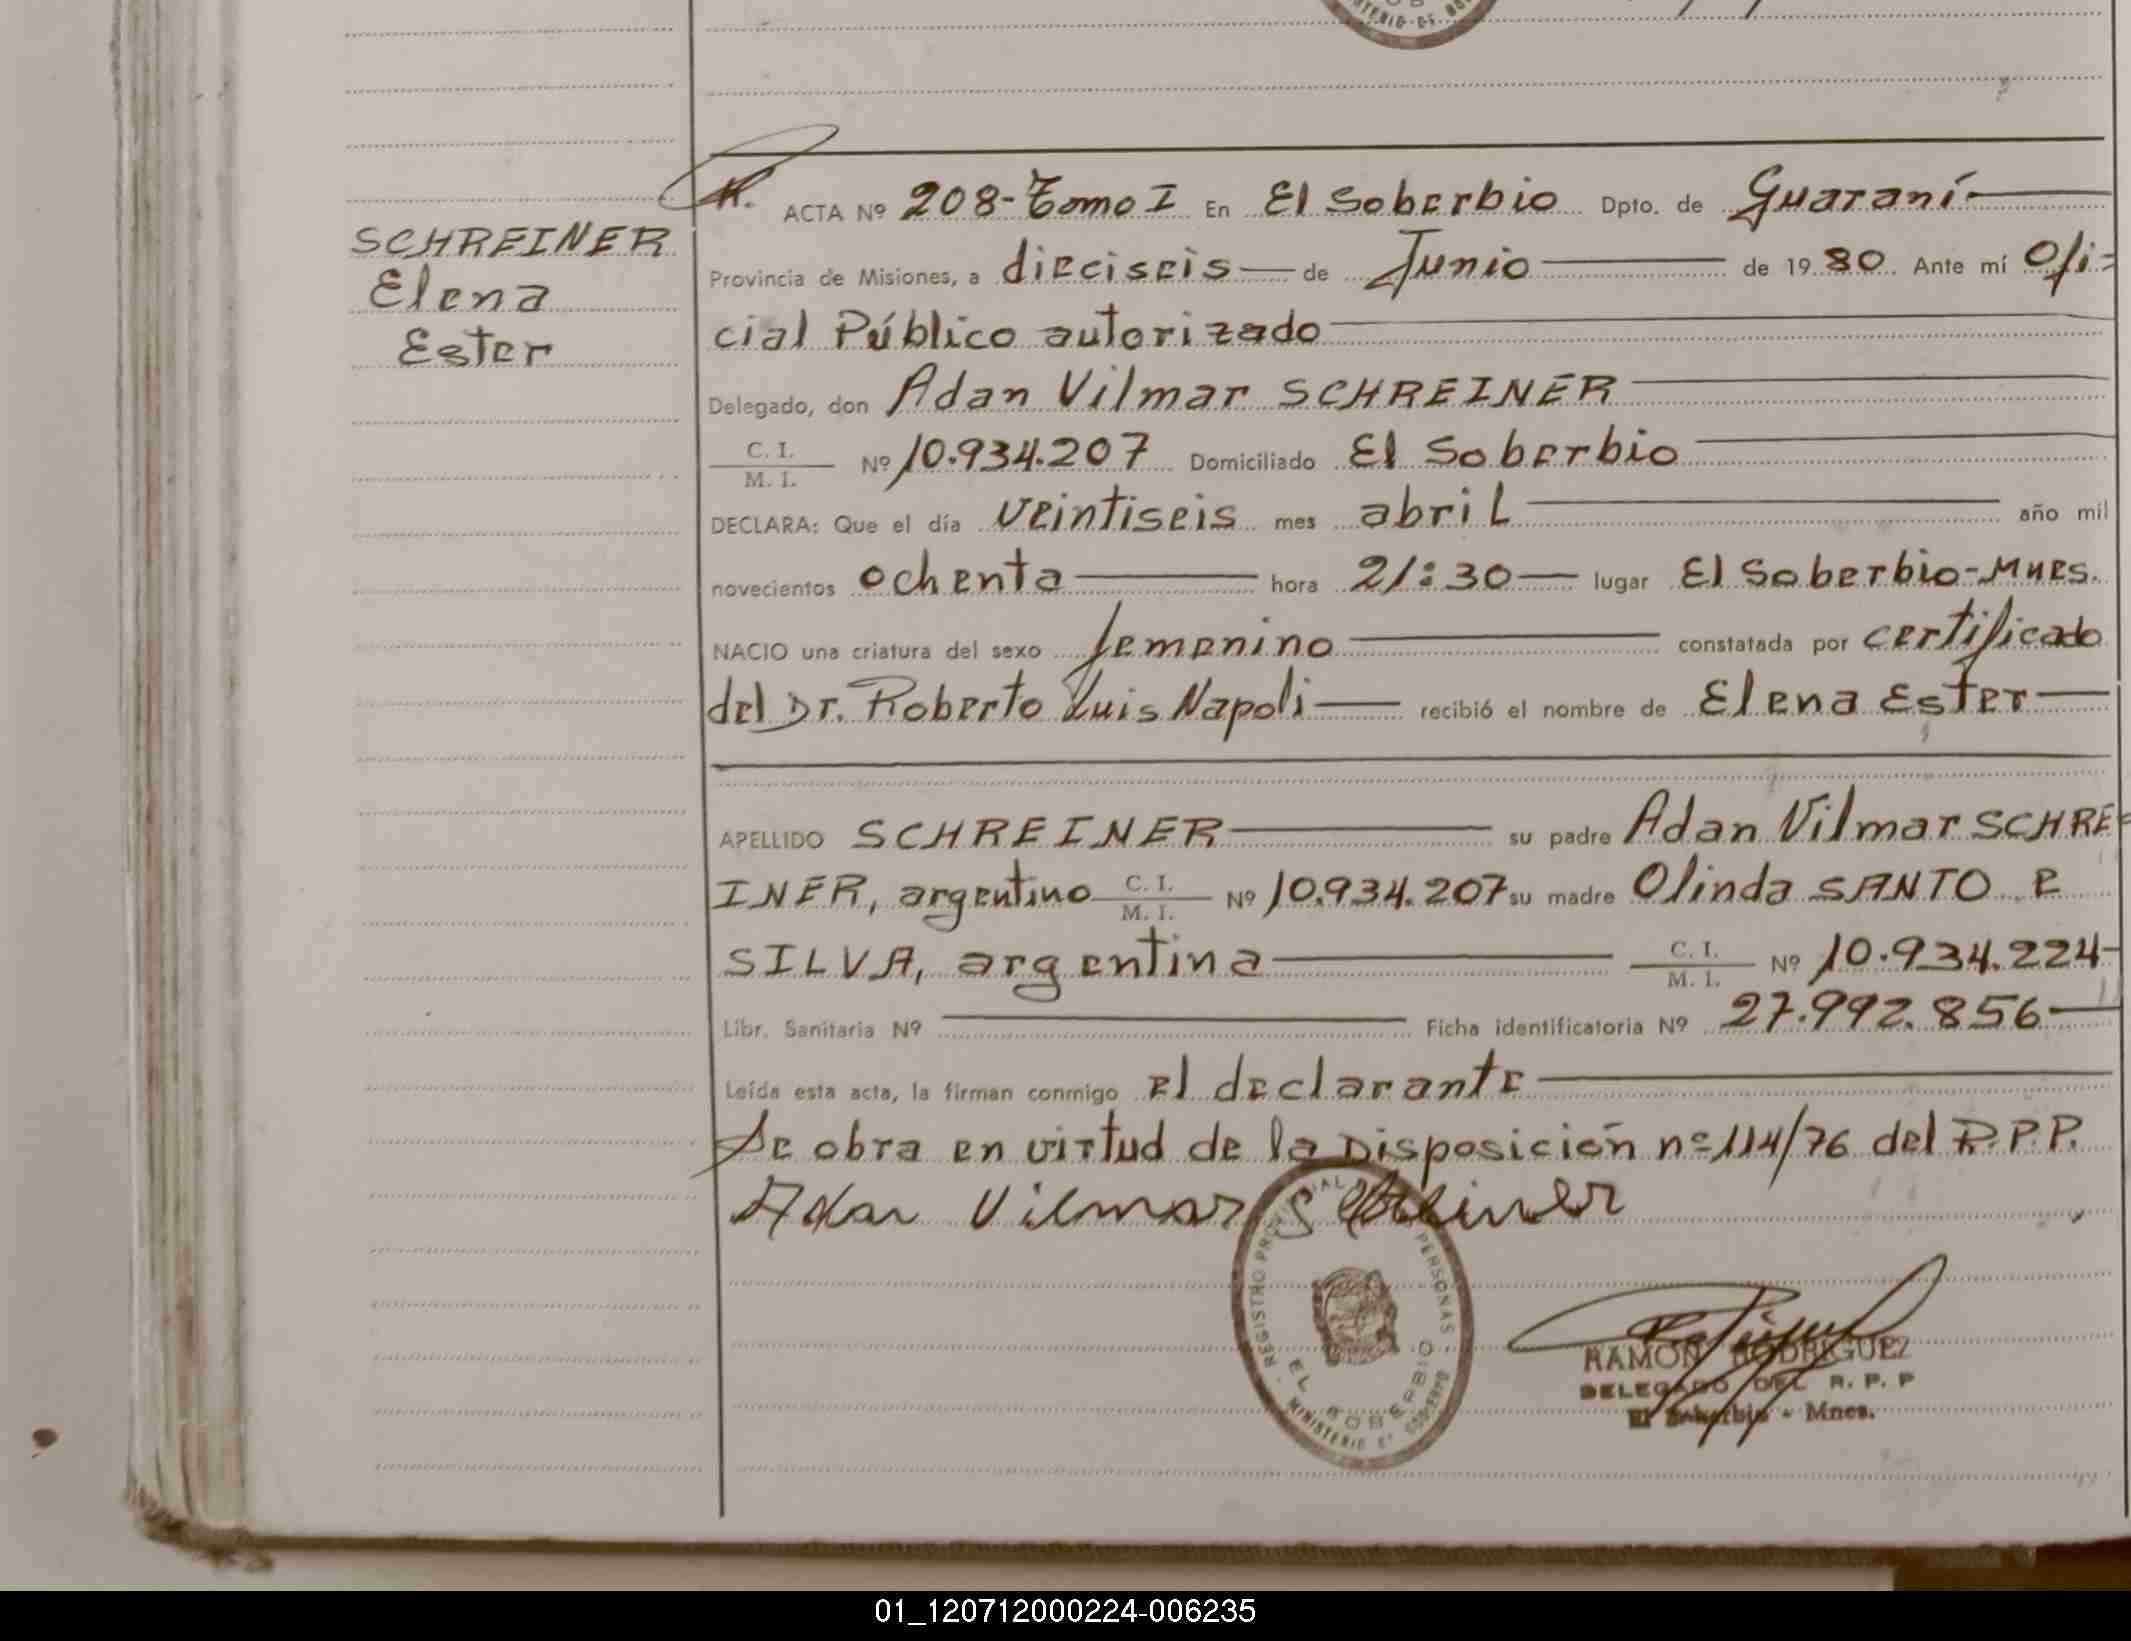 SCHREINER
Elena
Ester
ACTA Nº 208-Tomo I En El Soberbio Dpto. de Guaraní
Provincia de Misiones, a dieciseis de Junio de 1980. Ante mí Ofi-
cial Público autorizado
Delegado, don Adan Vilmar SCHREINER
C. I.
M. I. Nº 10.934.207 Domiciliado El Soberbio
DECLARA: Que el día veintiseis mes abril año mil
novecientos ochenta hora 21:30 lugar El Soberbio-Mnes.
NACIO una criatura del sexo femenino constatada por certificado
del Dr. Roberto Luis Napoli recibió el nombre de Elena Ester
APELLIDO SCHREINER su padre Adan Vilmar SCHRE-
INER, argentino C. I. M. I. Nº 10.934.207 su madre Olinda SANTO E
SILVA, argentina C. I. M. I. Nº 10.934.224-
Libr. Sanitaria Nº Ficha identificatoria Nº 27.992.856
Leída esta acta, la firman conmigo el declarante
Se obra en virtud de la Disposición nº 114/76 del R.P.P.
Adan Vilmar Schreiner
REGISTRO PROVINCIAL PERSONAS
EL SOBERBIO
MINISTERIO DE GOBIERNO
RAMON RODRIGUEZ
DELEGADO DEL R. P. P
El Soberbio - Mnes.
01_120712000224-006235